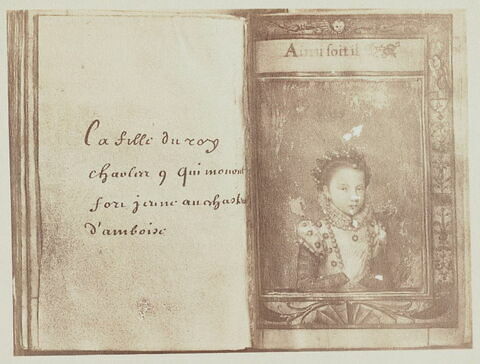 La fille du roy
charles 9 qui mourut
fort jeune au chaste
d'amboise
Ainsi soit il